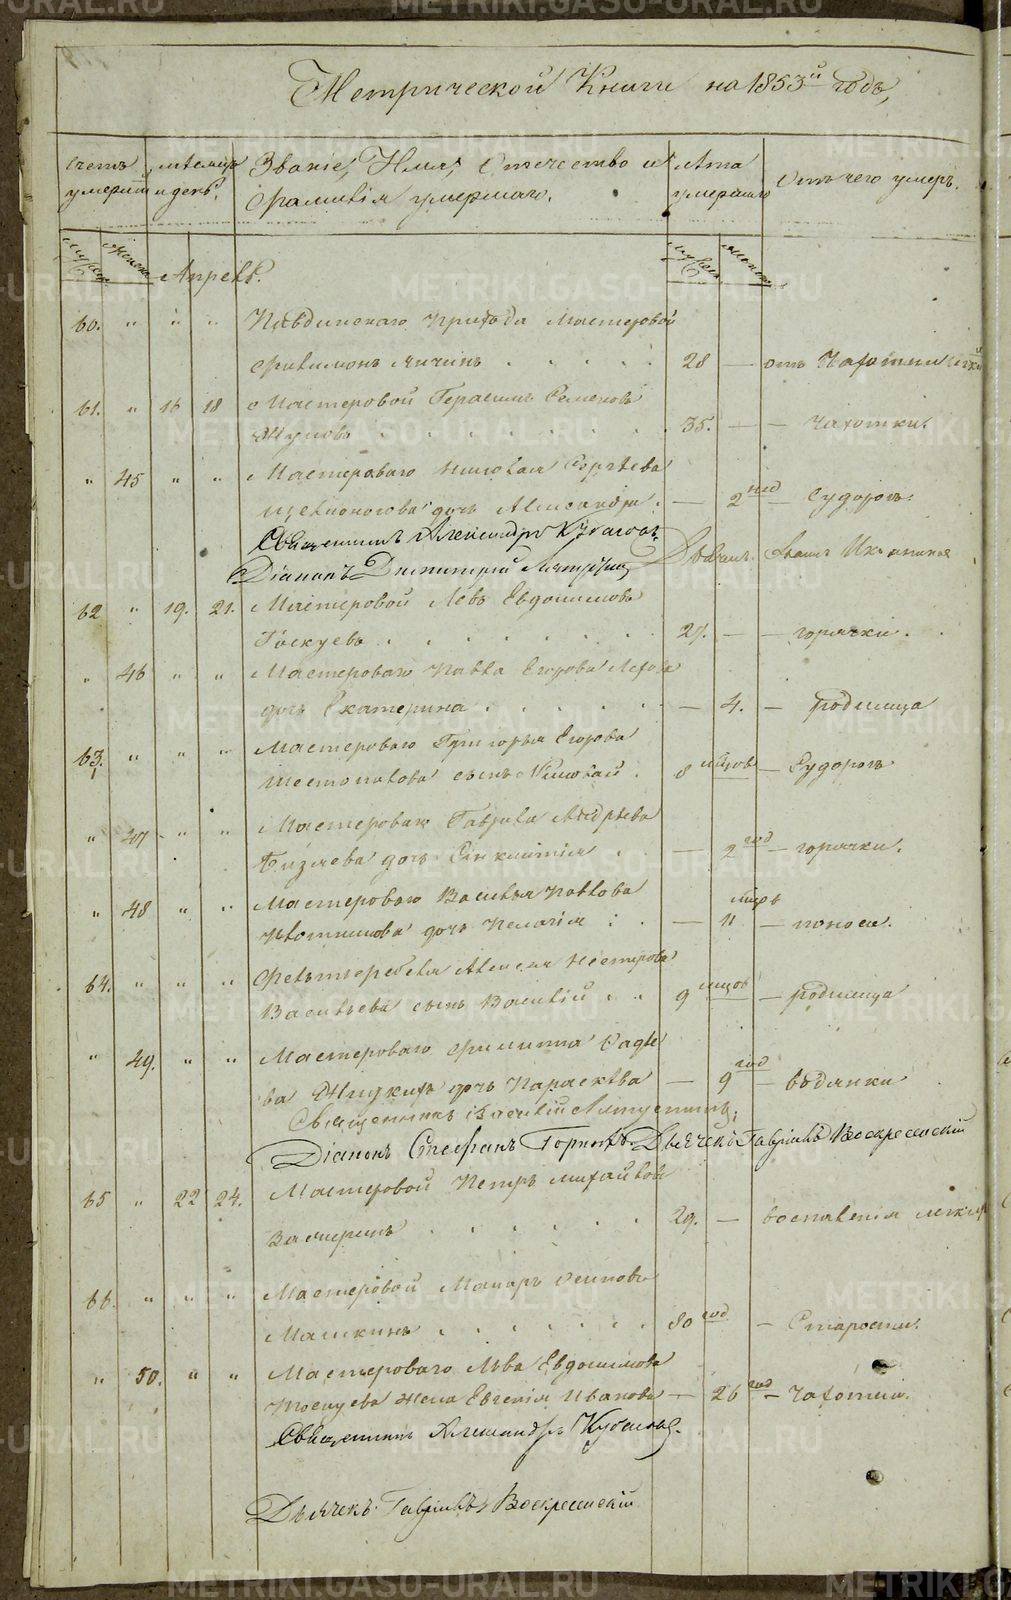 Метрической Книги на 1853й годъ,
Счетъ умерш. мѣсяцъ и день. Званіе, Имя, Отечество и Фамилія умершаго. Лѣта умершаго Отъ чего умеръ.
Мужеск. Женск. Апрель. Мужеск. Женск.
60. " " " Павдинскаго Прихода Мастеровой
Филимонъ 28 — отъ Чахотки
61. " 16 18 Мастеровой Герасимъ Семеновъ
35. — — Чахотки.
" 45 " " Мастероваго Николая Сергѣева
Щелконогова дочь Александра. — 2 нед — Судорогъ.
Священникъ Александръ Кубасовъ.
Діаконъ Димитрій Дьячекъ Иванъ
62 " 19. 21. Мастеровой Левъ Евдокимовъ
27. — — горячки.
" 46 " " Мастероваго Павла Егорова
дочь Екатерина — 4. — родимца
63. " " " Мастероваго Григорья Егорова
Шестопалова сынъ Николай. 8 мѣсцовъ — Судорогъ
" 47 " " Мастероваго Гаврила Андрѣева
Бизяева дочь Синклитія — 2 год — горячки.
" 48 " " Мастероваго Василья Павлова
дочь Пелагія — 11 — поноса.
64. " " " Фельтшера Алексея Нестерова
Васильева сынъ Василій 9 мѣсцов — родимца
" 49. " " Мастероваго Филиппа Савве
ва Жидкихъ дочь Параскева — 9 год — водянки
Священникъ Василій
Діаконъ Стефанъ Дьячекъ Гавріилъ Воскресенскій
65 " 22 24. Мастеровой Петръ Михайловъ
29. — воспаленія легкихъ
66. " " " Мастеровой Макаръ Осиповъ
Машкинъ 80 год — Старости.
" 50. " " Мастероваго Льва Евдокимова
жена Евгенія Иванова — 26 год — Чахотки.
Священникъ Александръ Кубасовъ.
Дьячекъ Гавріилъ Воскресенскій
METRIKI.GASO-URAL.RU